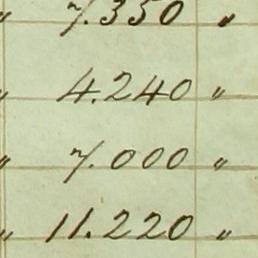 " 7.350 "
" 4.240 "
" 7.000 "
" 11.220 "